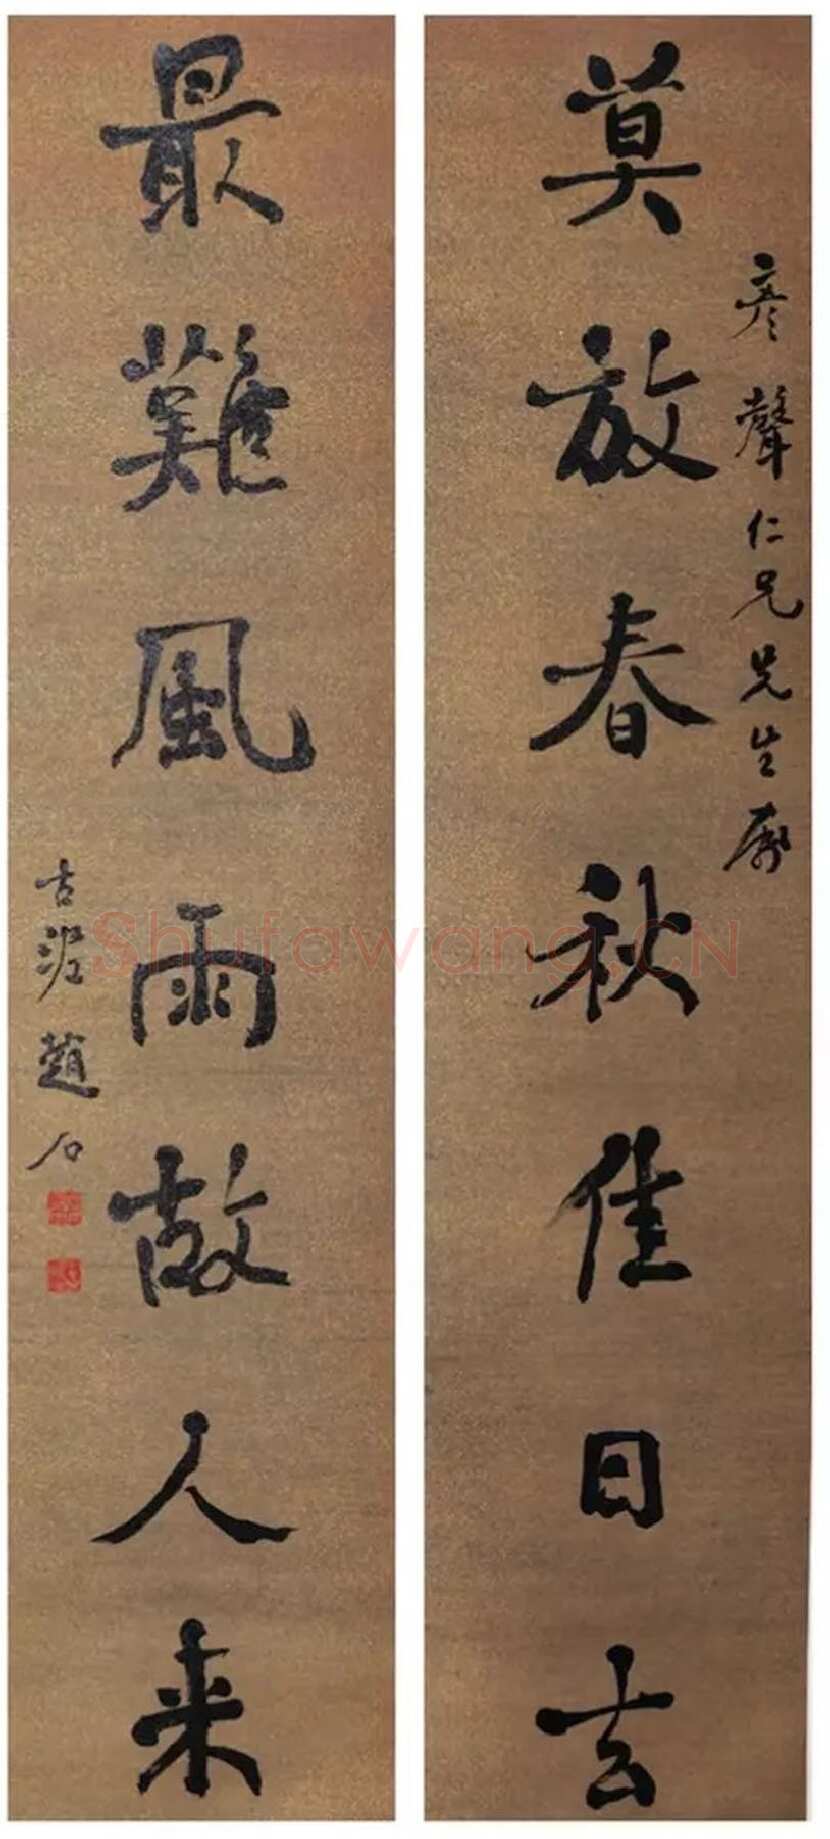 莫放春秋佳日去
彦聲仁兄先生屬
最難風雨故人来
古泥趙石
Shufawang.CN